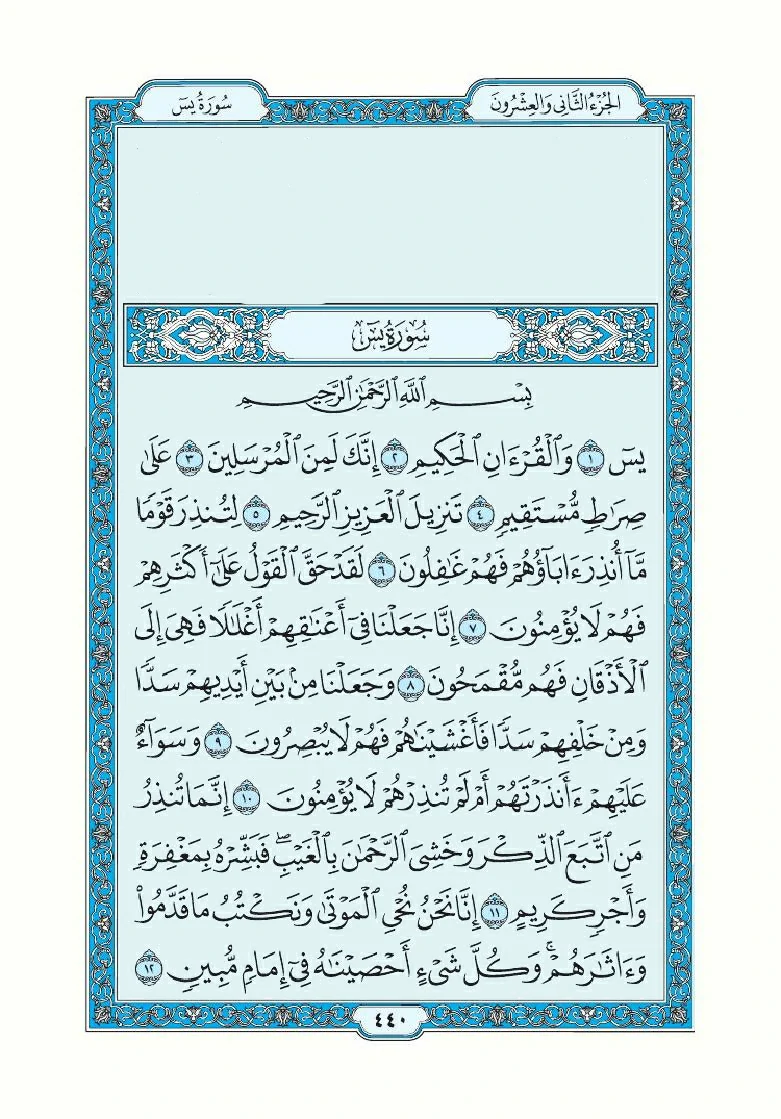 الجُزْءُ الثَّانِي وَالْعِشْرُونَ
سُورَةُ يسٓ
سُورَةُ يسٓ
بِسْمِ ٱللَّهِ ٱلرَّحْمَٰنِ ٱلرَّحِيمِ
يسٓ ١ وَٱلْقُرْءَانِ ٱلْحَكِيمِ ٢ إِنَّكَ لَمِنَ ٱلْمُرْسَلِينَ ٣ عَلَىٰ
صِرَٰطٍ مُّسْتَقِيمٍ ٤ تَنزِيلَ ٱلْعَزِيزِ ٱلرَّحِيمِ ٥ لِتُنذِرَ قَوْمًا
مَّآ أُنذِرَ ءَابَآؤُهُمْ فَهُمْ غَٰفِلُونَ ٦ لَقَدْ حَقَّ ٱلْقَوْلُ عَلَىٰٓ أَكْثَرِهِمْ
فَهُمْ لَا يُؤْمِنُونَ ٧ إِنَّا جَعَلْنَا فِىٓ أَعْنَٰقِهِمْ أَغْلَٰلًا فَهِىَ إِلَى
ٱلْأَذْقَانِ فَهُم مُّقْمَحُونَ ٨ وَجَعَلْنَا مِنۢ بَيْنِ أَيْدِيهِمْ سَدًّا
وَمِنْ خَلْفِهِمْ سَدًّا فَأَغْشَيْنَٰهُمْ فَهُمْ لَا يُبْصِرُونَ ٩ وَسَوَآءٌ
عَلَيْهِمْ ءَأَنذَرْتَهُمْ أَمْ لَمْ تُنذِرْهُمْ لَا يُؤْمِنُونَ ١٠ إِنَّمَا تُنذِرُ
مَنِ ٱتَّبَعَ ٱلذِّكْرَ وَخَشِىَ ٱلرَّحْمَٰنَ بِٱلْغَيْبِ ۖ فَبَشِّرْهُ بِمَغْفِرَةٍ
وَأَجْرٍ كَرِيمٍ ١١ إِنَّا نَحْنُ نُحْىِ ٱلْمَوْتَىٰ وَنَكْتُبُ مَا قَدَّمُوا۟
وَءَاثَٰرَهُمْ ۚ وَكُلَّ شَىْءٍ أَحْصَيْنَٰهُ فِىٓ إِمَامٍ مُّبِينٍ ١٢
٤٤٠